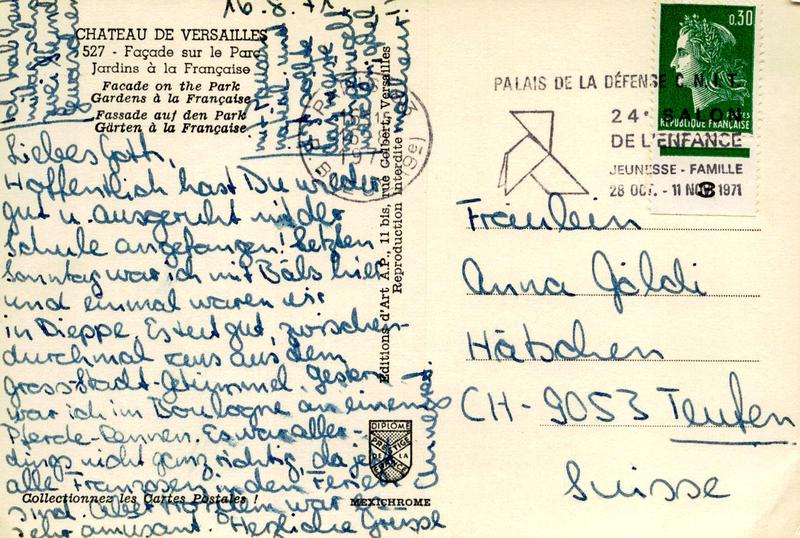 16.8.71
CHATEAU DE VERSAILLES
527 - Façade sur le Parc
Jardins à la Française
Facade on the Park
Gardens à la Française
Fassade auf den Park
Gärten à la Française
Liebes Gotti,
Hoffentlich hast Du wieder
gut u. ausgeruht mit der
Schule angefangen! Letzten
Sonntag war ich mit Bäls hier
und einmal waren wir
in Dieppe. Es tut gut, zwischen-
durchmal raus aus dem
Gross-Stadt-Getümmel. Gestern
war ich im Boulogne an einem
Pferde-Rennen. Es war aller-
dings nicht ganz richtig, da ja
alle Franzosen in den Ferien
sind. Aber trotzdem war es
sehr amusant. Herzliche Grüsse
Collectionnez les Cartes Postales !
Editions d'Art A.P., 11 bis, rue Colbert, Versailles
Reproduction interdite
DIPLOME
PRESTIGE
DE LA
FRANCE
MEXICHROME
PARIS
1971
PALAIS DE LA DÉFENSE C.N.I.T.
24e SALON
DE L'ENFANCE
JEUNESSE - FAMILLE
28 OCT. - 11 NOV 1971
0,30
POSTES
REPUBLIQUE FRANÇAISE
8
Fräulein
Anna Göldi
Hätschen
CH-9053 Teufen
Suisse